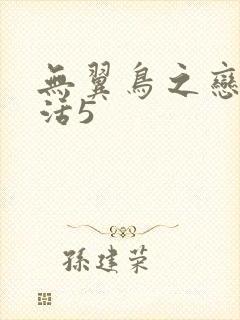 無翼鳥之戀
活5
孫建荣